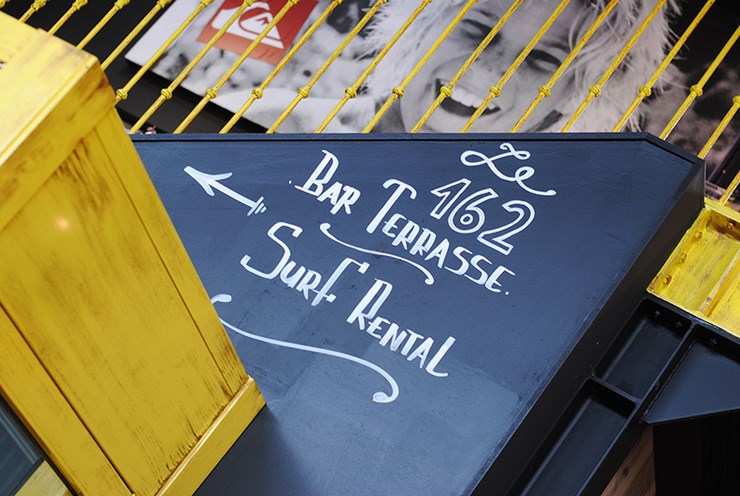 Le
162
Bar Terrasse.
Surf Rental